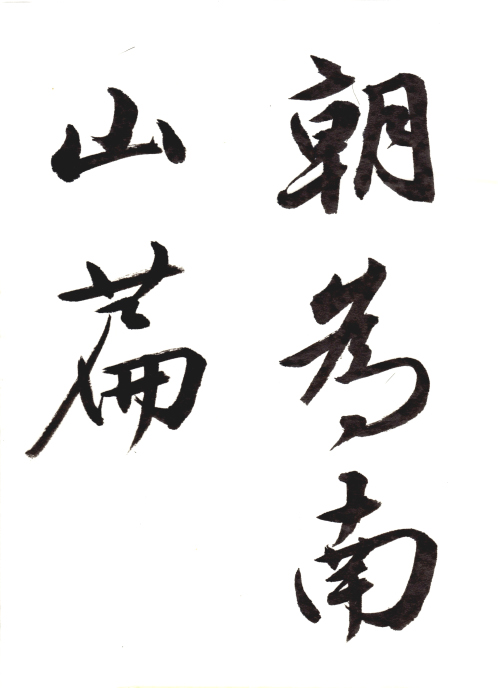 朝為南
山篇